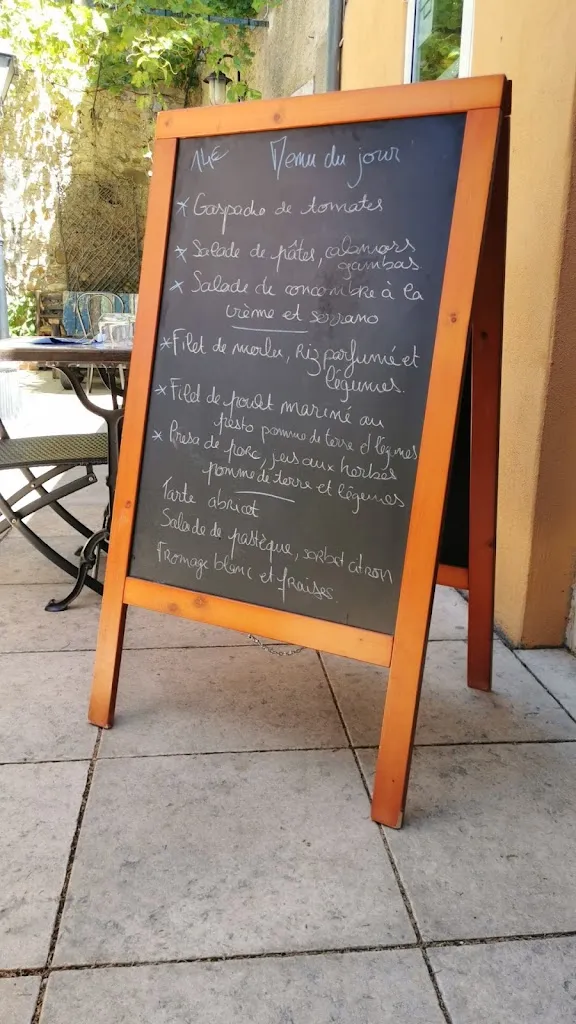 14€ Menu du jour
* Gaspacho de tomates
* Salade de pâtes, calamars
gambas
* Salade de concombre à la
crème et serrano
* Filet de merlu, Riz parfumé et
légumes.
* Filet de poulet mariné au
pesto pomme de terre et légumes
* Presa de porc, jus aux herbes
pomme de terre et légumes
Tarte abricot
Salade de pastèque, sorbet citron
Fromage blanc et fraises.